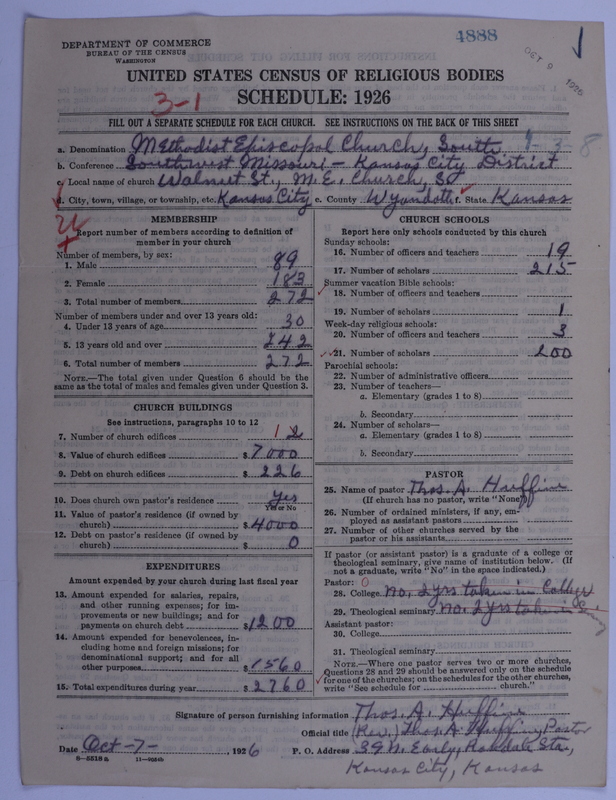 4888
DEPARTMENT OF COMMERCE
BUREAU OF THE CENSUS
WASHINGTON
OCT 9 1926
UNITED STATES CENSUS OF RELIGIOUS BODIES
SCHEDULE: 1926
3-1
FILL OUT A SEPARATE SCHEDULE FOR EACH CHURCH. SEE INSTRUCTIONS ON THE BACK OF THIS SHEET
a. Denomination Methodist Episcopal Church, South 1-3-8
b. Conference Southwest Missouri - Kansas City District
c. Local name of church Walnut St., M.E. Church, So
d. City, town, village, or township, etc. Kansas City e. County Wyandott f. State Kansas
MEMBERSHIP
Report number of members according to definition of member in your church
Number of members, by sex:
1. Male 89
2. Female 183
3. Total number of members 272
Number of members under and over 13 years old:
4. Under 13 years of age 30
5. 13 years old and over 242
6. Total number of members 272
NOTE.—The total given under Question 6 should be the same as the total of males and females given under Question 3.
CHURCH BUILDINGS
See instructions, paragraphs 10 to 12
7. Number of church edifices 1 2
8. Value of church edifices $ 7000
9. Debt on church edifices $ 226
10. Does church own pastor's residence Yes
Yes or No
11. Value of pastor's residence (if owned by church) $ 4000
12. Debt on pastor's residence (if owned by church) $ 0
EXPENDITURES
Amount expended by your church during last fiscal year
13. Amount expended for salaries, repairs, and other running expenses; for improvements or new buildings; and for payments on church debt $ 1200
14. Amount expended for benevolences, including home and foreign missions; for denominational support; and for all other purposes $ 1560
15. Total expenditures during year $ 2760
CHURCH SCHOOLS
Report here only schools conducted by this church
Sunday schools:
16. Number of officers and teachers 19
17. Number of scholars 215
Summer vacation Bible schools:
18. Number of officers and teachers
19. Number of scholars 1
Week-day religious schools:
20. Number of officers and teachers 3
21. Number of scholars 200
Parochial schools:
22. Number of administrative officers
23. Number of teachers—
a. Elementary (grades 1 to 8)
b. Secondary
24. Number of scholars—
a. Elementary (grades 1 to 8)
b. Secondary
PASTOR
25. Name of pastor Thos. A. Huffine
(If church has no pastor, write "None")
26. Number of ordained ministers, if any, employed as assistant pastors
27. Number of other churches served by the pastor or his assistants
If pastor (or assistant pastor) is a graduate of a college or theological seminary, give name of institution below. (If not a graduate, write "No" in the space indicated.)
Pastor: 0
28. College no, 2 yrs taken in College
29. Theological seminary no, 2 yrs taken in
Assistant pastor:
30. College
31. Theological seminary
NOTE.—Where one pastor serves two or more churches, Questions 28 and 29 should be answered only on the schedule for one of the churches; on the schedules for the other churches, write "See schedule for church."
Signature of person furnishing information Thos. A. Huffine
Official title (Rev.) Thos A. Huffine, Pastor
Date Oct-7-, 1926 P. O. Address 39 N. Early, Rosedale Sta.,
Kansas City, Kansas